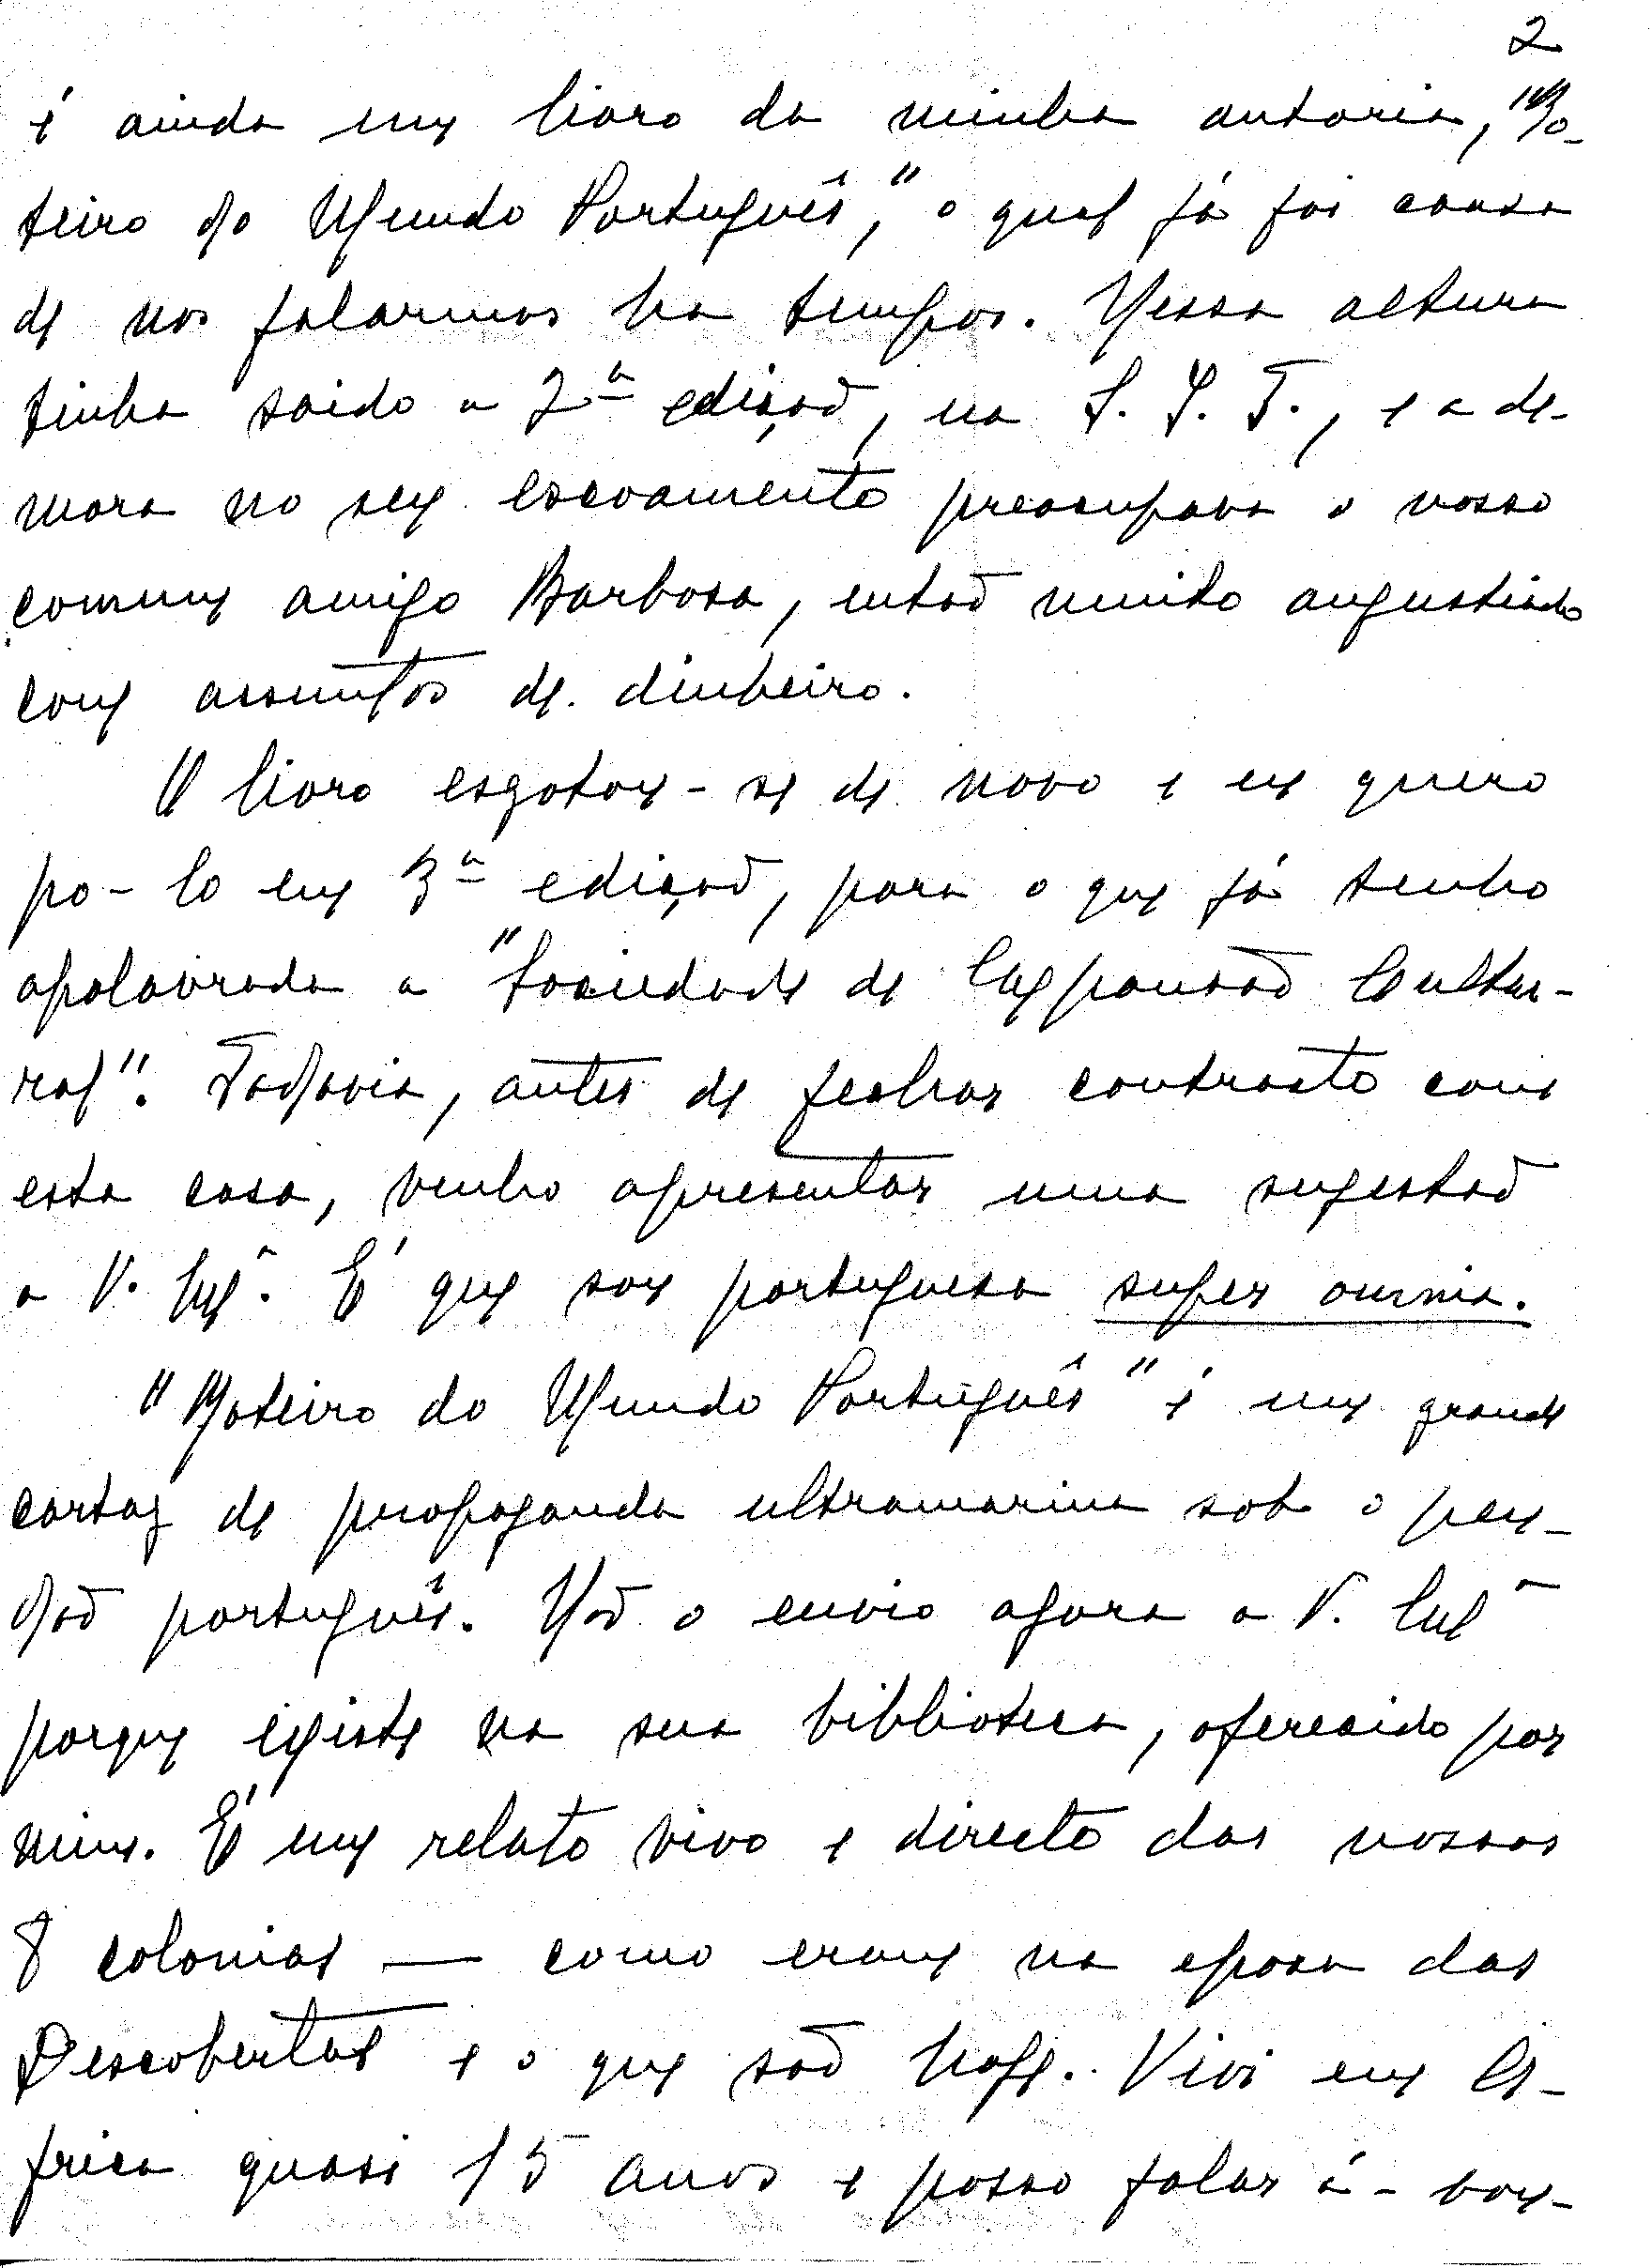 2
é ainda um livro da minha autoria, "Ro-
teiro do Mundo Português," o qual já foi causa
de nos falarmos ha tempos. Nessa altura
tinha saido a 2ª edição, na S. I. T., e a de-
mora no seu escoamento preocupava o nosso
comum amigo Barbosa, então muito angustiado
com assuntos de dinheiro.
O livro esgotou-se de novo e eu quero
po-lo em 3ª edição, para o que já tenho
apalavrada a "Sociedade de Expansão Cultu-
ral". Todavia, antes de fechar contracto com
esta casa, venho apresentar uma sugestão
a V. Exª. É que sou portuguesa super omnia.
"Roteiro do Mundo Português" é um grande
cartaz de propaganda ultramarina sob o pen-
dão português. Não o envio agora a V. Exª
porque existe na sua biblioteca, oferecido por
mim. É um relato vivo e directo das nossas
8 colonias — como eram na epoca das
Descobertas e o que são hoje. Vivi em A-
frica quasi 15 anos e posso falar á-von-